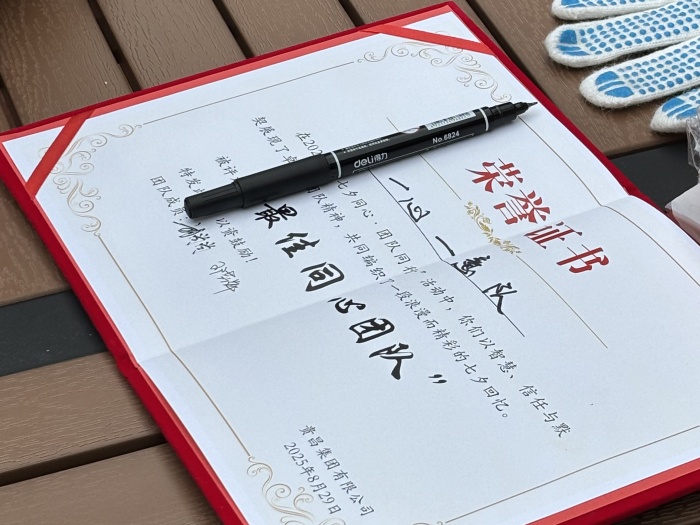 荣誉证书
一心一意队
在202 七夕同心·团队同行”活动中，你们以智慧、信任与默
契展现了卓 团队精神，共同编织了一段浪漫而精彩的七夕回忆。
被评
最佳同心团队”
特发 以资鼓励！
团队成员：
贵昌集团有限公司
2025年8月29日
deli得力
No.6824